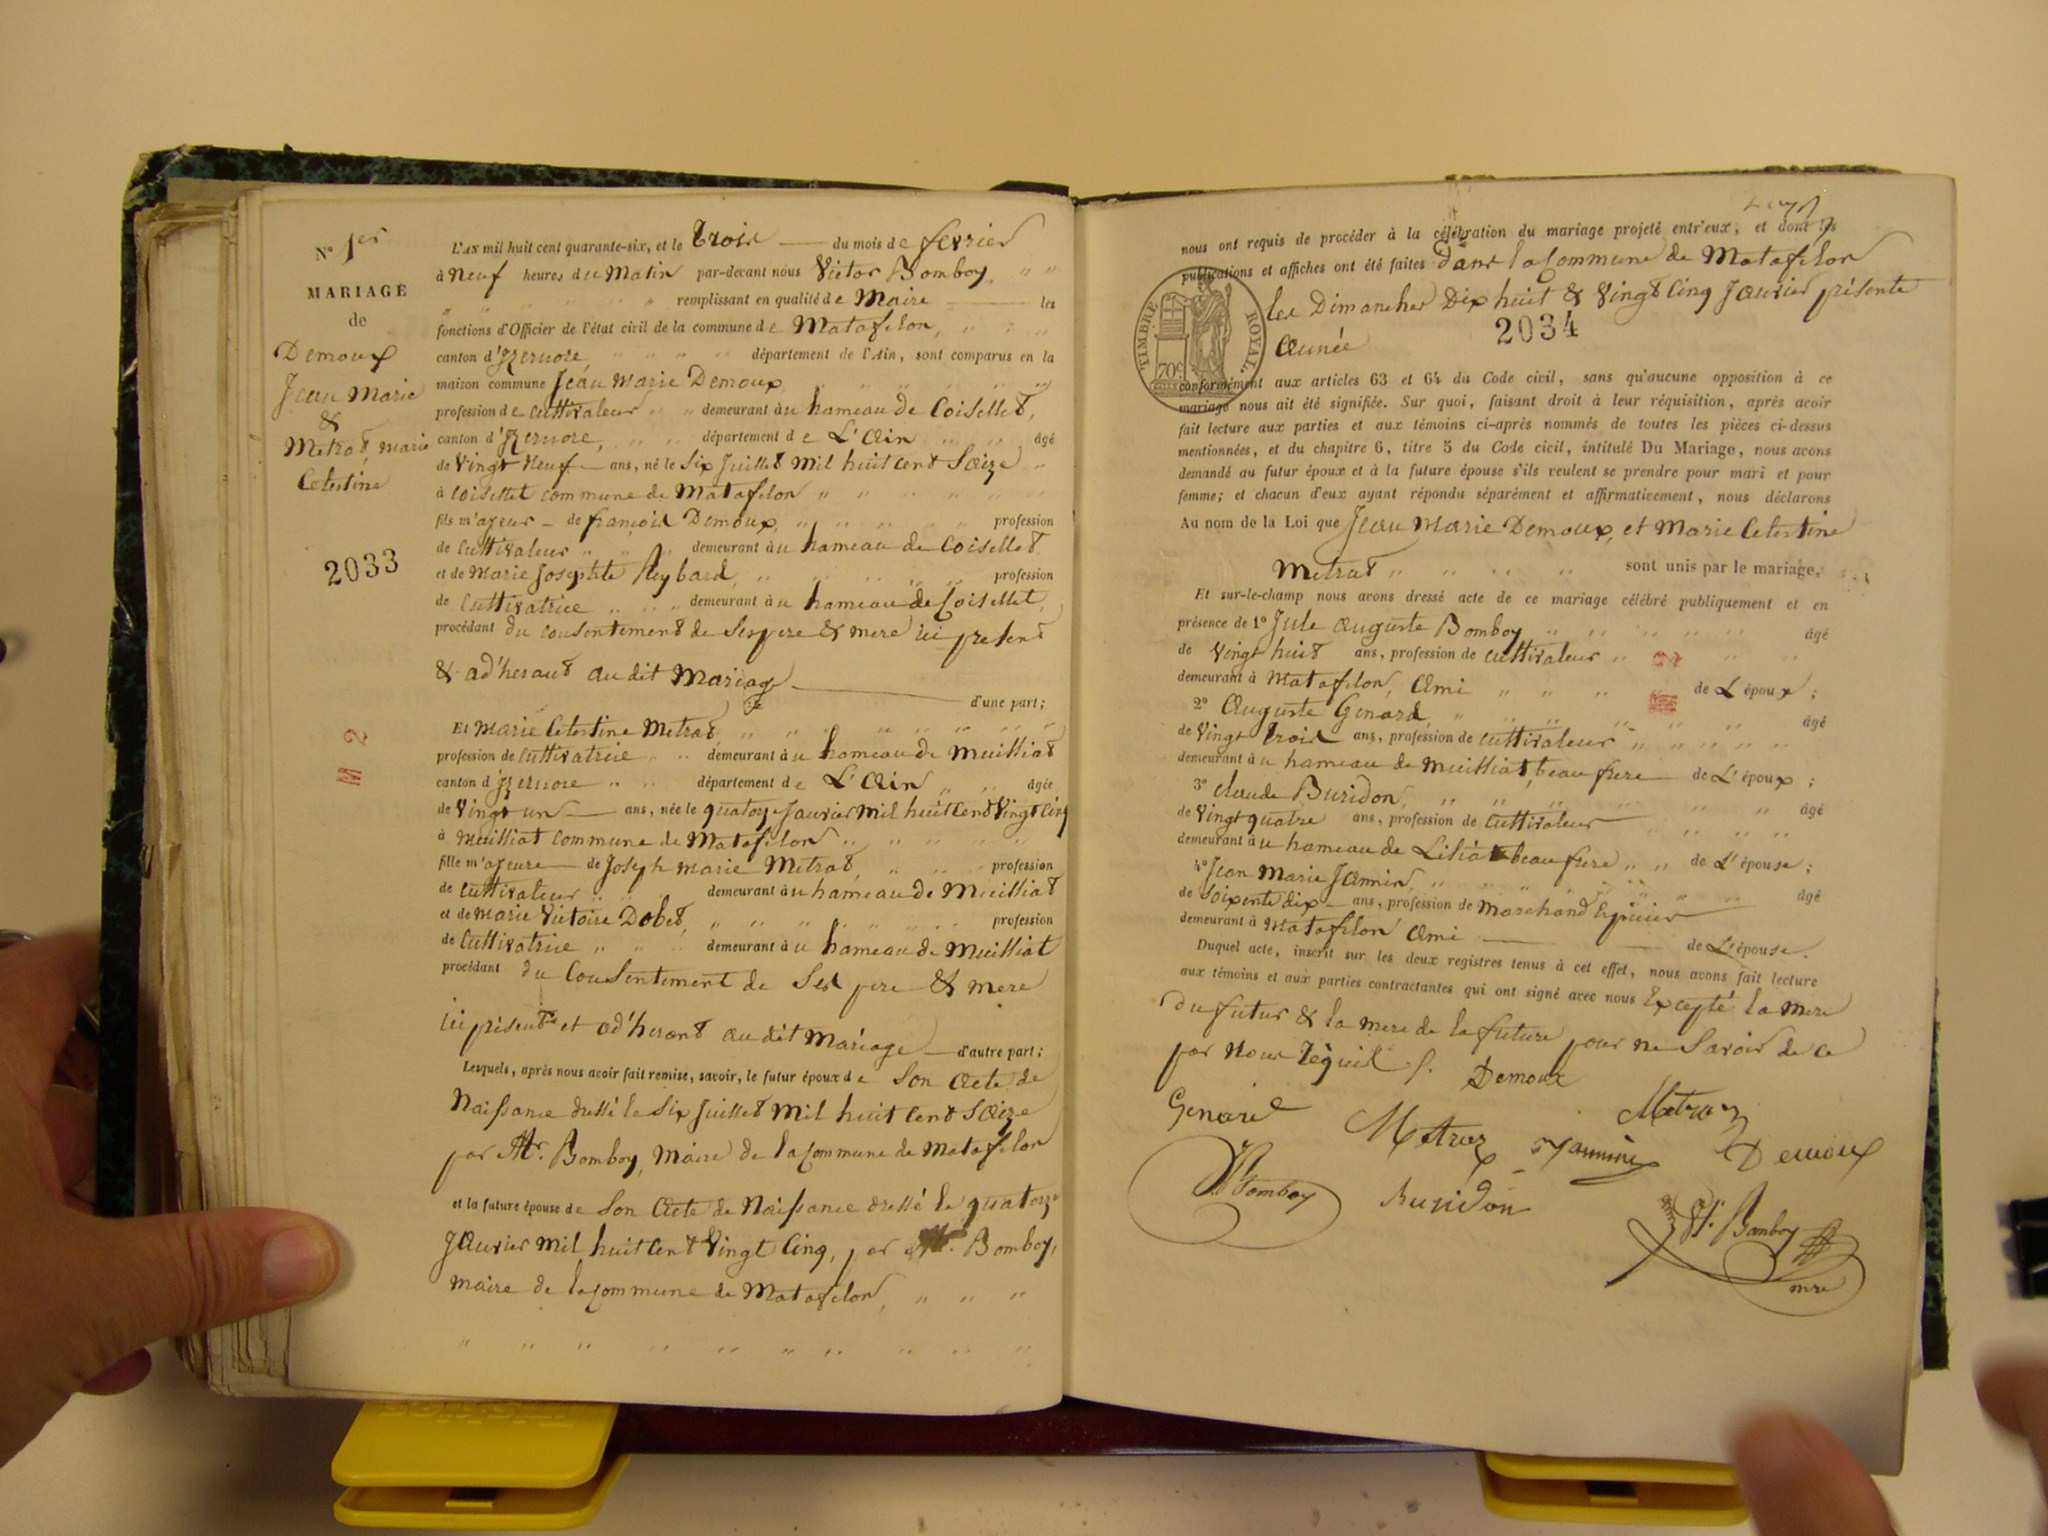 N° 1er
MARIAGE
de
Demoux
Jean Marie
&
Metrat, marie
Celestine
2033
M 2
L'AN mil huit cent quarante-six, et le trois du mois de fevrier
à neuf heures du Matin par-devant nous Victor Bomboy
remplissant en qualité de Maire les
fonctions d'Officier de l'état civil de la commune de Matafelon,
canton d'Izernore département de l'Ain, sont comparus en la
maison commune Jean Marie Demoux
profession de cultivateur demeurant au hameau de Coisellet,
canton d'Izernore, département de L'Ain âgé
de vingt neuf ans, né le Six Juillet Mil huit cent Seize
à Coisellet commune de Matafelon
fils majeur de françois Demoux, profession
de Cultivateur demeurant au hameau de Coisellet
et de Marie Josephte Reybard, profession
de Cultivatrice demeurant au hameau de Coisellet,
procédant du consentement de Ses pere & mere ici present
& ad'herant au dit Mariage d'une part;
Et Marie Celestine Metrat,
profession de Cultivatrice demeurant au hameau de Meilliat
canton d'Izernore département de L'Ain âgée
de vingt un ans, née le quatorze Janvier mil huit cent vingt Cinq
à Meilliat commune de Matafelon
fille majeure de Joseph marie Metrat, profession
de Cultivateur demeurant au hameau de Meilliat
et de Marie Victoire Dobet, profession
de Cultivatrice demeurant au hameau de Meilliat
procédant du Consentement de Ses pere & mere
ici présents et ad'herant au dit Mariage d'autre part;
Lesquels, après nous avoir fait remise, savoir, le futur époux de Son Acte de
Naissance dressé le Six Juillet Mil huit cent Seize
par Mr. Bomboy, Maire de la Commune de Matafelon
et la future épouse de Son Acte de Naissance dressé le quatorze
Janvier mil huit cent vingt Cinq, par Mr. Bomboy,
Maire de la Commune de Matafelon,
nous ont requis de procéder à la célébration du mariage projeté entr'eux, et dont les
publications et affiches ont été faites dans la Commune de Matafelon
les Dimanches Dix huit & vingt Cinq Janvier présente
Année
2034
TIMBRE ROYAL
70c
conformément aux articles 63 et 64 du Code civil, sans qu'aucune opposition à ce
mariage nous ait été signifiée. Sur quoi, faisant droit à leur réquisition, après avoir
fait lecture aux parties et aux témoins ci-après nommés de toutes les pièces ci-dessus
mentionnées, et du chapitre 6, titre 5 du Code civil, intitulé Du Mariage, nous avons
demandé au futur époux et à la future épouse s'ils veulent se prendre pour mari et pour
femme; et chacun d'eux ayant répondu séparément et affirmativement, nous déclarons
Au nom de la Loi que Jean Marie Demoux, et Marie Celestine
Metrat sont unis par le mariage.
Et sur-le-champ nous avons dressé acte de ce mariage célébré publiquement et en
présence de 1° Jule Auguste Bomboy âgé
de vingt huit ans, profession de cultivateur
demeurant à Matafelon, Ami de L'époux;
2° Auguste Genard, âgé
de vingt trois ans, profession de Cultivateur
demeurant au hameau de Meilliat, beau frere de L'époux;
3° Claude Buridon, âgé
de vingt quatre ans, profession de Cultivateur
demeurant au hameau de Liliat beau frere de L'épouse;
4° Jean Marie Jannin, âgé
de Soixente dix ans, profession de Marchand Epicier
demeurant à Matafelon Ami de L'épouse.
Duquel acte, inscrit sur les deux registres tenus à cet effet, nous avons fait lecture
aux témoins et aux parties contractantes qui ont signé avec nous Excepté la Mere
du futur & la mere de la future pour ne Savoir de ce
par Nous requis
Demoux
Genard
Metraz
Metraz
Jannin
Demoux
Bomboy
Buridon
Vr. Bomboy
mre